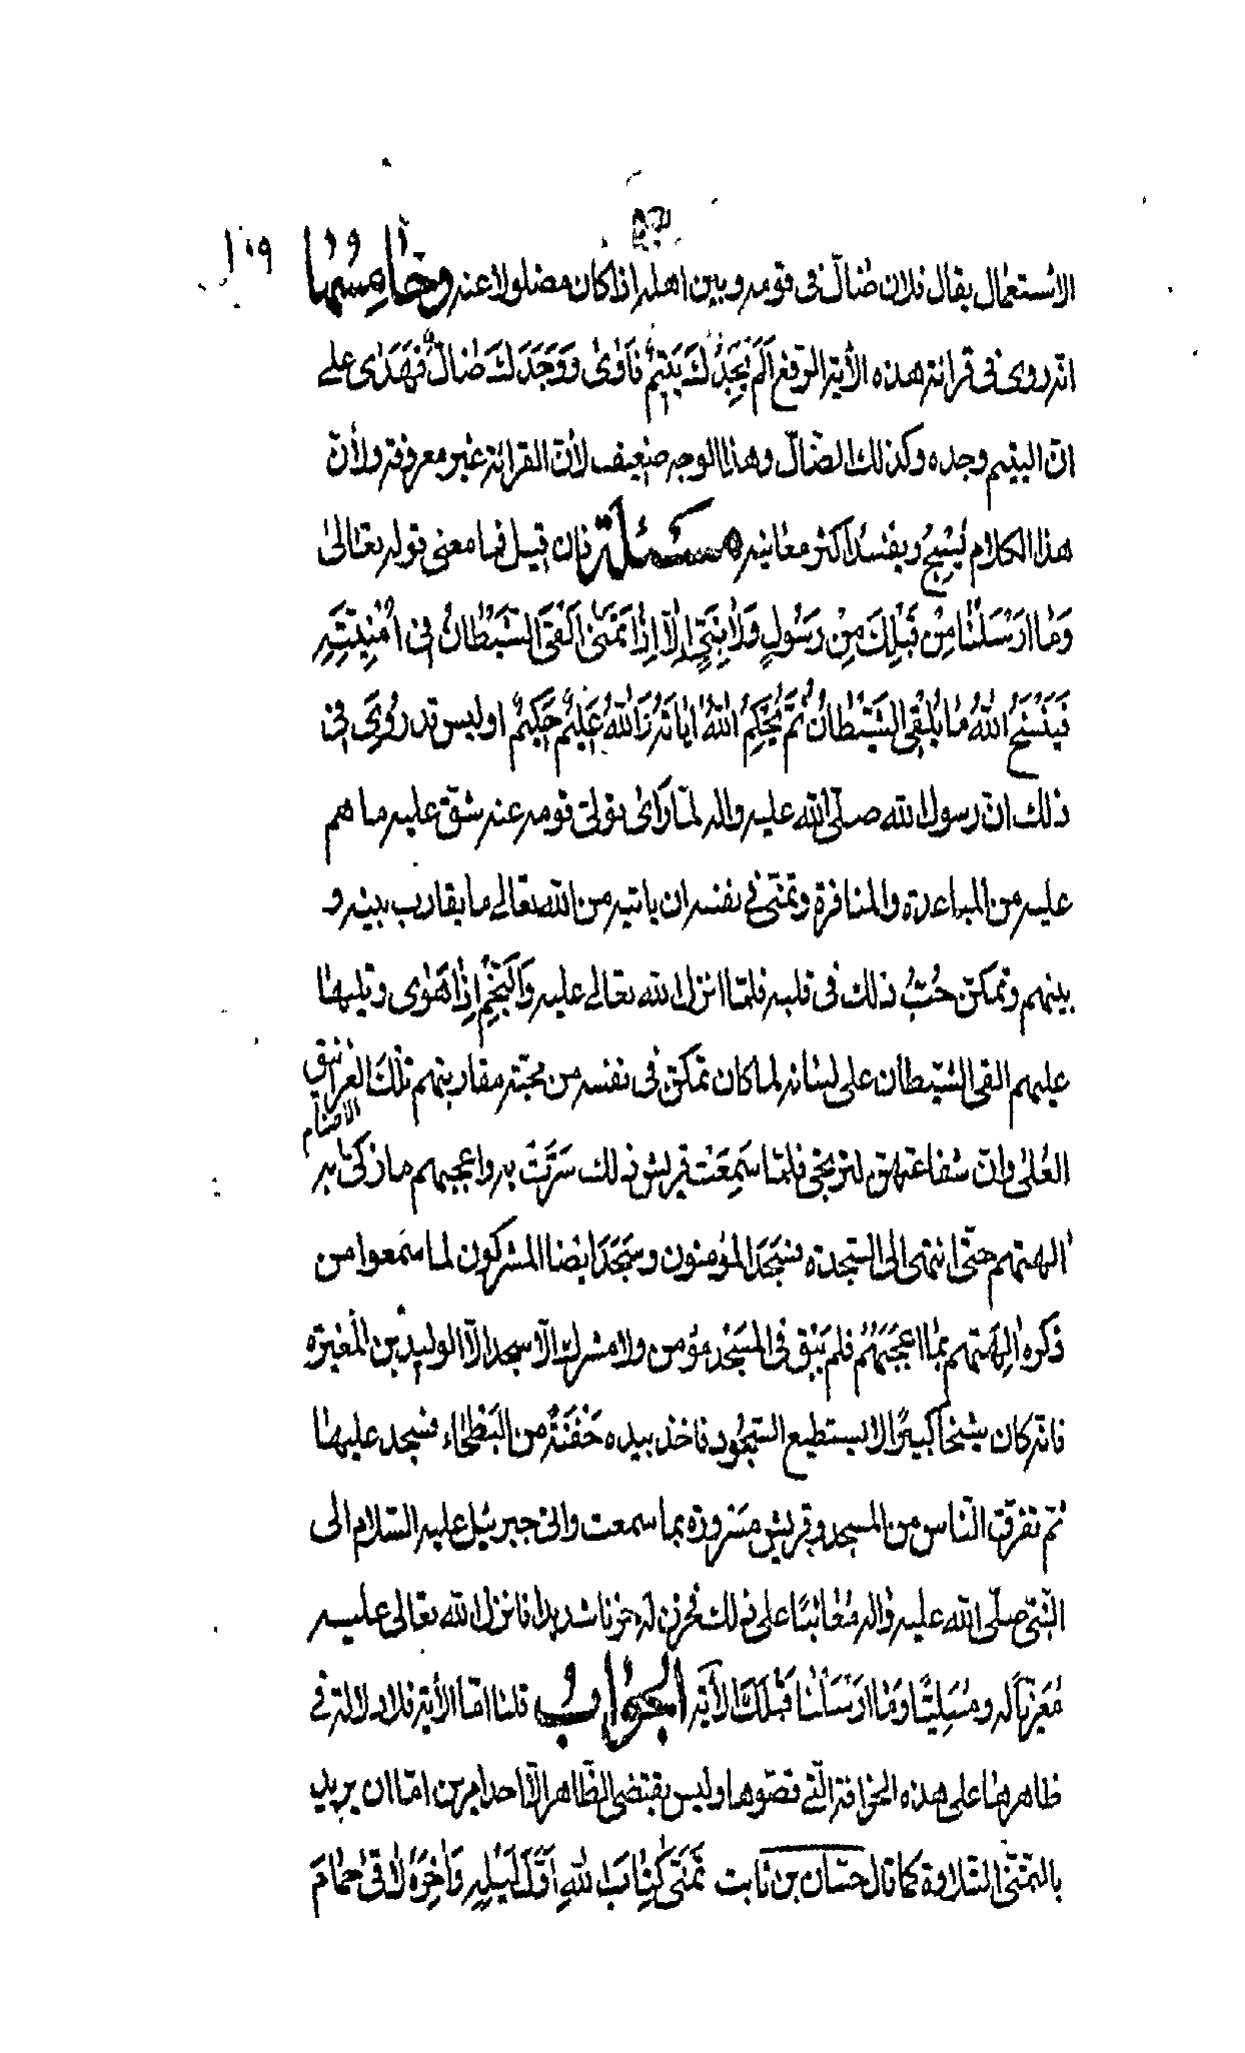 ١٠٩
الاستعمال يقال فلان ضالّ فى قومه وبين اهله اذا كان مضلولا عنه وخامسها
انّه روى فى قرائة هذه الأية الرّفع اَلَم يَجِدْكَ يَتيمٌ فَاوٰى وَوَجَدَكَ ضالٌّ فَهَدٰى على
انّ اليتيم وجده وكذلك الضّالّ وهذا الوجه ضعيف لأنّ القرائة غير معروفة ولأنّ
هذا الكلام يَسْمُجُ ويفسُدُ اكثر معانيه مسئلة فان قيل فما معنى قوله تعالىٰ
وَمٰا اَرْسَلْنٰا مِنْ قَبْلِكَ مِنْ رَسُولٍ وَلاٰ نَبِىٍّ اِلاّٰ اِذٰا تَمَنّىٰ اَلْقَى الشَّيْطٰانُ فى اُمْنِيَّتِهِ
فَيَنْسَخُ اللهُ مٰا يُلْقِى الشَّيْطٰانُ ثُمَّ يُحْكِمُ اللهُ ايٰاتِهِ وَاللهُ عَليٌم حَكيمٌ اوليس قد رُوِىَ فى
ذلك انّ رسول الله صلّى الله عليه واله لمّا رَاىٰ تولّى قومه عنه شقّ عليه ما هم
عليه من المباعدة والمنافرة وتمنّى فى نفسه ان ياتيه من الله تعالى ما يقارب بينه و
بينهم وتمكّن حُبُّ ذلك فى قلبه فلمّا انزل الله تعالى عليه وَالنَّجْمِ اِذٰا هَوٰى وتليها
عليهم القى الشّيطان على لسانه لما كان تمكّن فى نفسه من محبّة مقاربتهم تِلْكَ الغرانيق
الاصنام
العُلىٰ وانّ شفاعتهنّ لترتجى فلمّا سَمِعَت قريش ذلك سَرَّتْ به واعجبهم ما زكّى به
الهتهم حتّى انتهى الى السّجدة فسَجَدَ المؤمنون وسَجَدَ ايضا المشركون لما سَمعوا من
ذكره الِهَتهم بمٰا اعجَبَهُم فلم يَبْق فى المَسْجد مؤمن ولا مشرك الاّ سجد الاّ الوليد بن المغيرة
فانّه كان شيخًا كبيرًا لا يستطيع السّجُود فاخذ بيده حَفْنَةً من البَطْحٰاء فسجد عليها
ثم تفرّق النّاس من المسجد وقريش مَسْرورة بما سمعت واتى جبرئيل عليه السّلام الى
النّبىّ صلّى الله عليه واله مُعٰاتبًا على ذلك فحزن له حزنا شديدا فانزل الله تعالى عليه
مُعَزّيًا له ومُسَلِيًّا وَمٰا اَرْسَلْنٰا قَبْلَكَ الأيَة الجواب قلنا امّا الأية فلا دلالة فى
ظاهرها على هذه الخرافة الّتى قصّوها وليس يقتضى الظّاهر الاّ احدامرين امّا ان يريد
بالتمنّى التّلاوة كما قال حسّان بن ثابت تَمَنّى كِتٰابَ اللهِ اَوَّلَ لَيْلِهِ وَاٰخِرَهُ لاٰقىٰ حمٰامَ